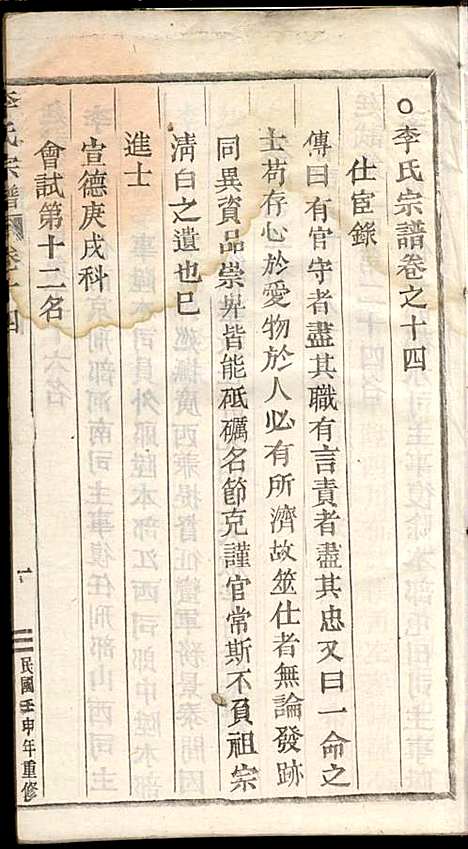 ○李氏宗譜卷之十四
仕宦錄
傳曰有官守者盡其職有言責者盡其忠又曰一命之
士苟存心於愛物於人必有所濟故筮仕者無論發跡
同異資品崇卑皆能砥礪名節克謹官常斯不負祖宗
清白之遺也已
進士
宣德庚戌科
會試第十二名
李氏宗譜 卷十四
一
民國壬申年重修